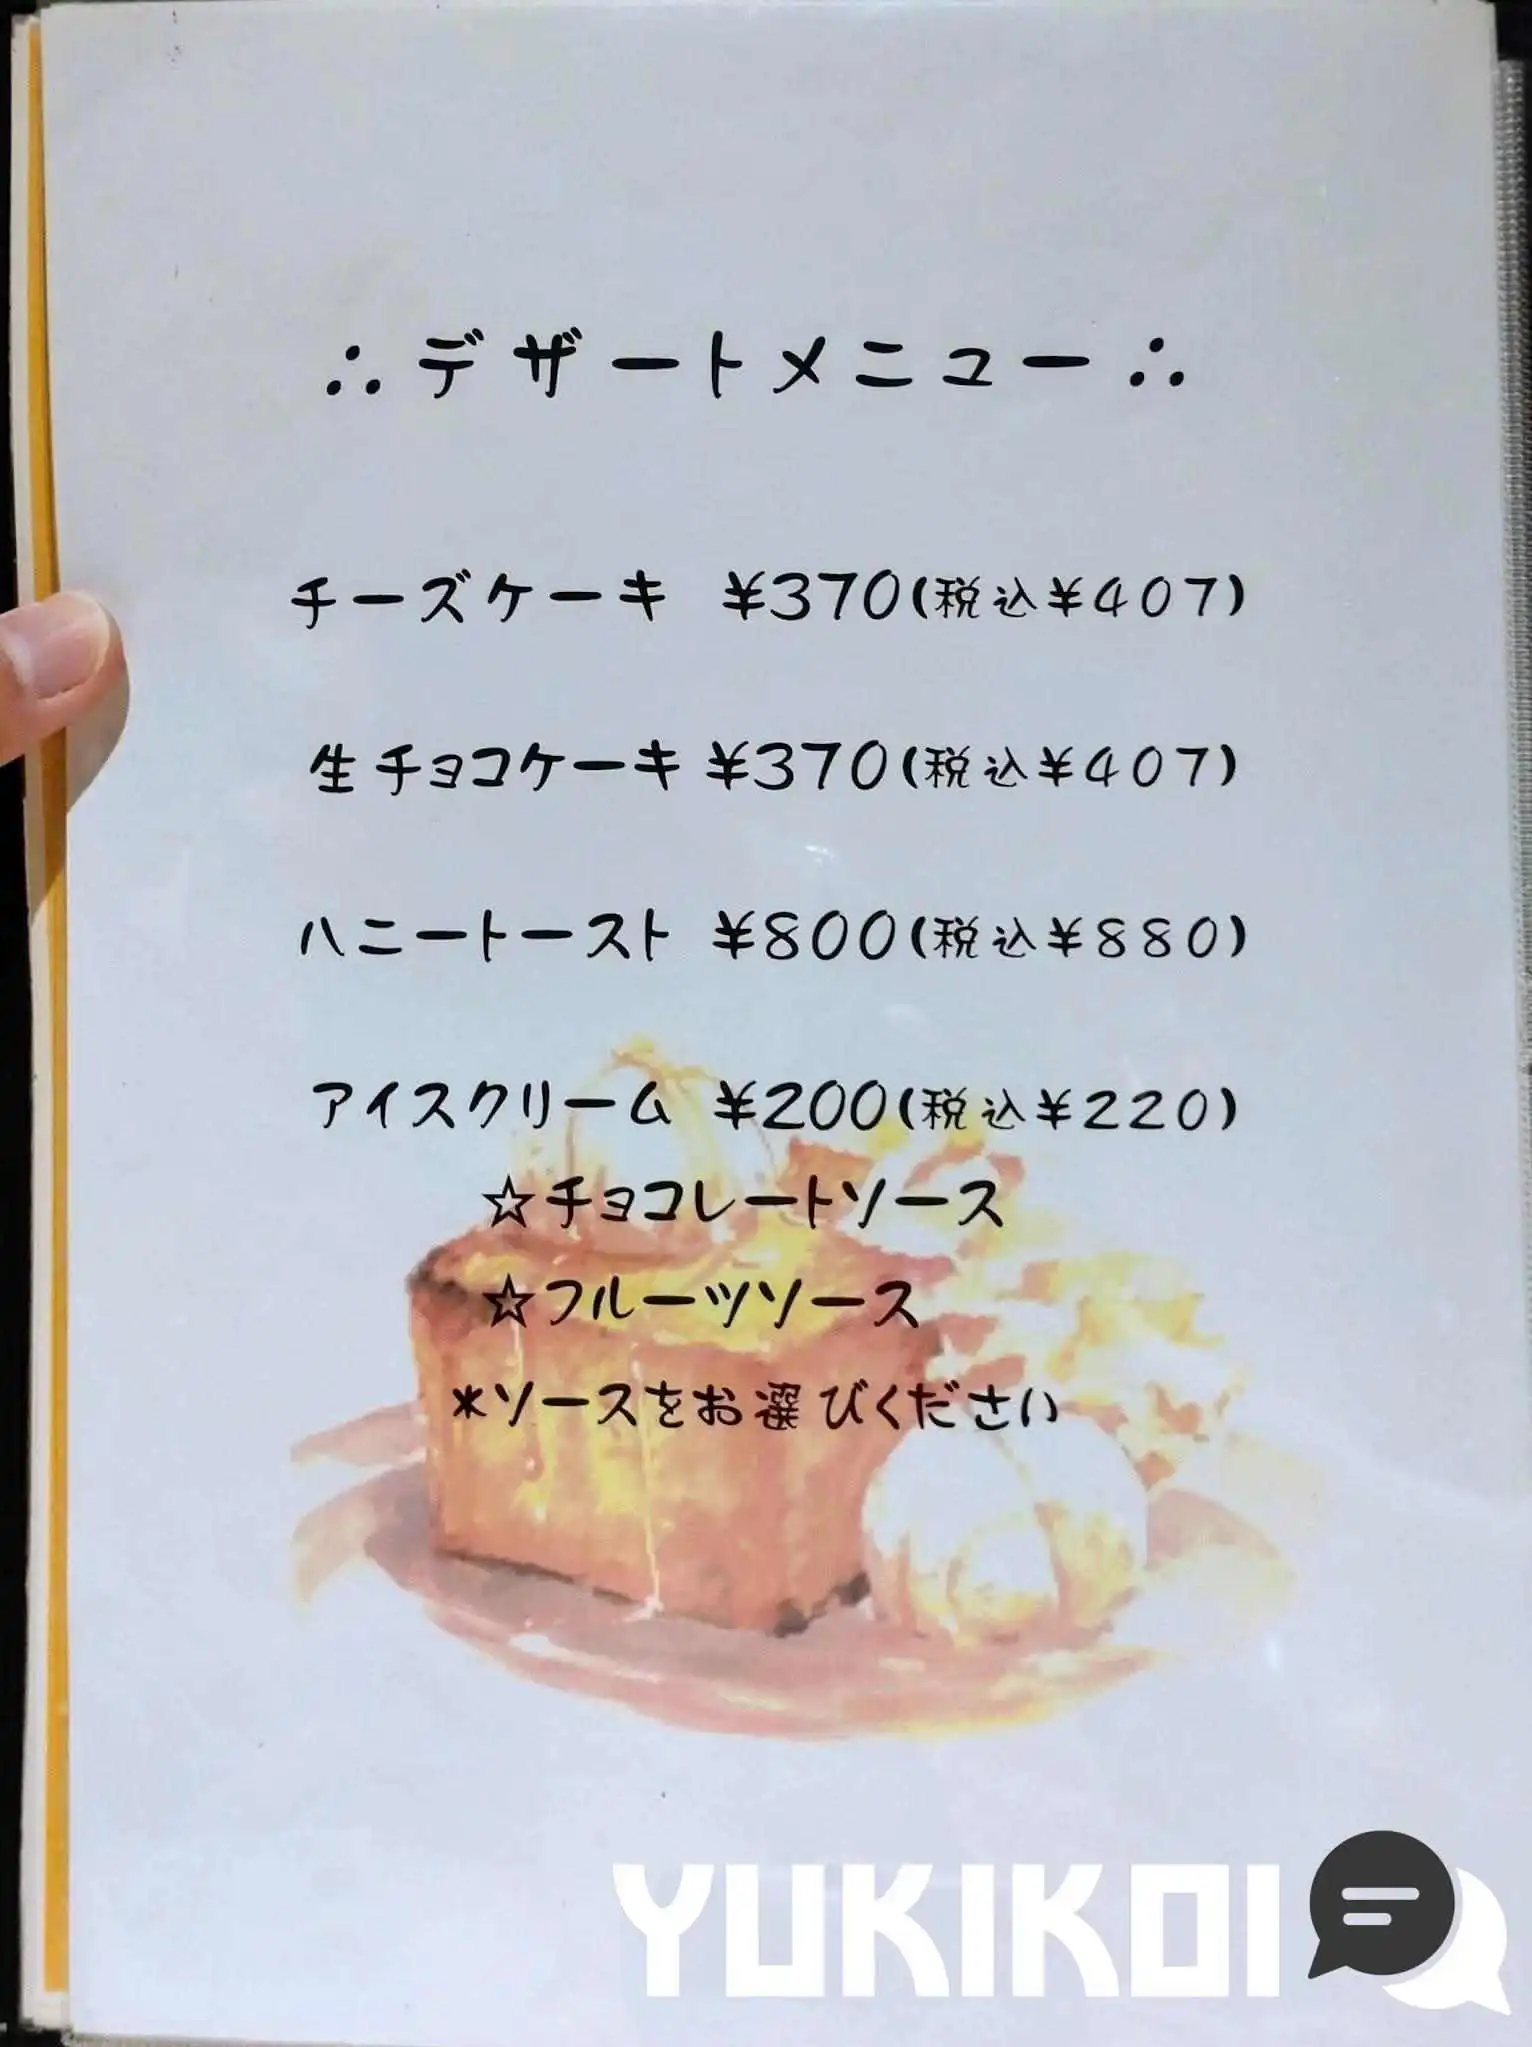 ∴デザートメニュー∴
チーズケーキ ¥370(税込¥407)
生チョコケーキ ¥370(税込¥407)
ハニートースト ¥800(税込¥880)
アイスクリーム ¥200(税込¥220)
☆チョコレートソース
☆フルーツソース
*ソースをお選びください
YUKIKOI